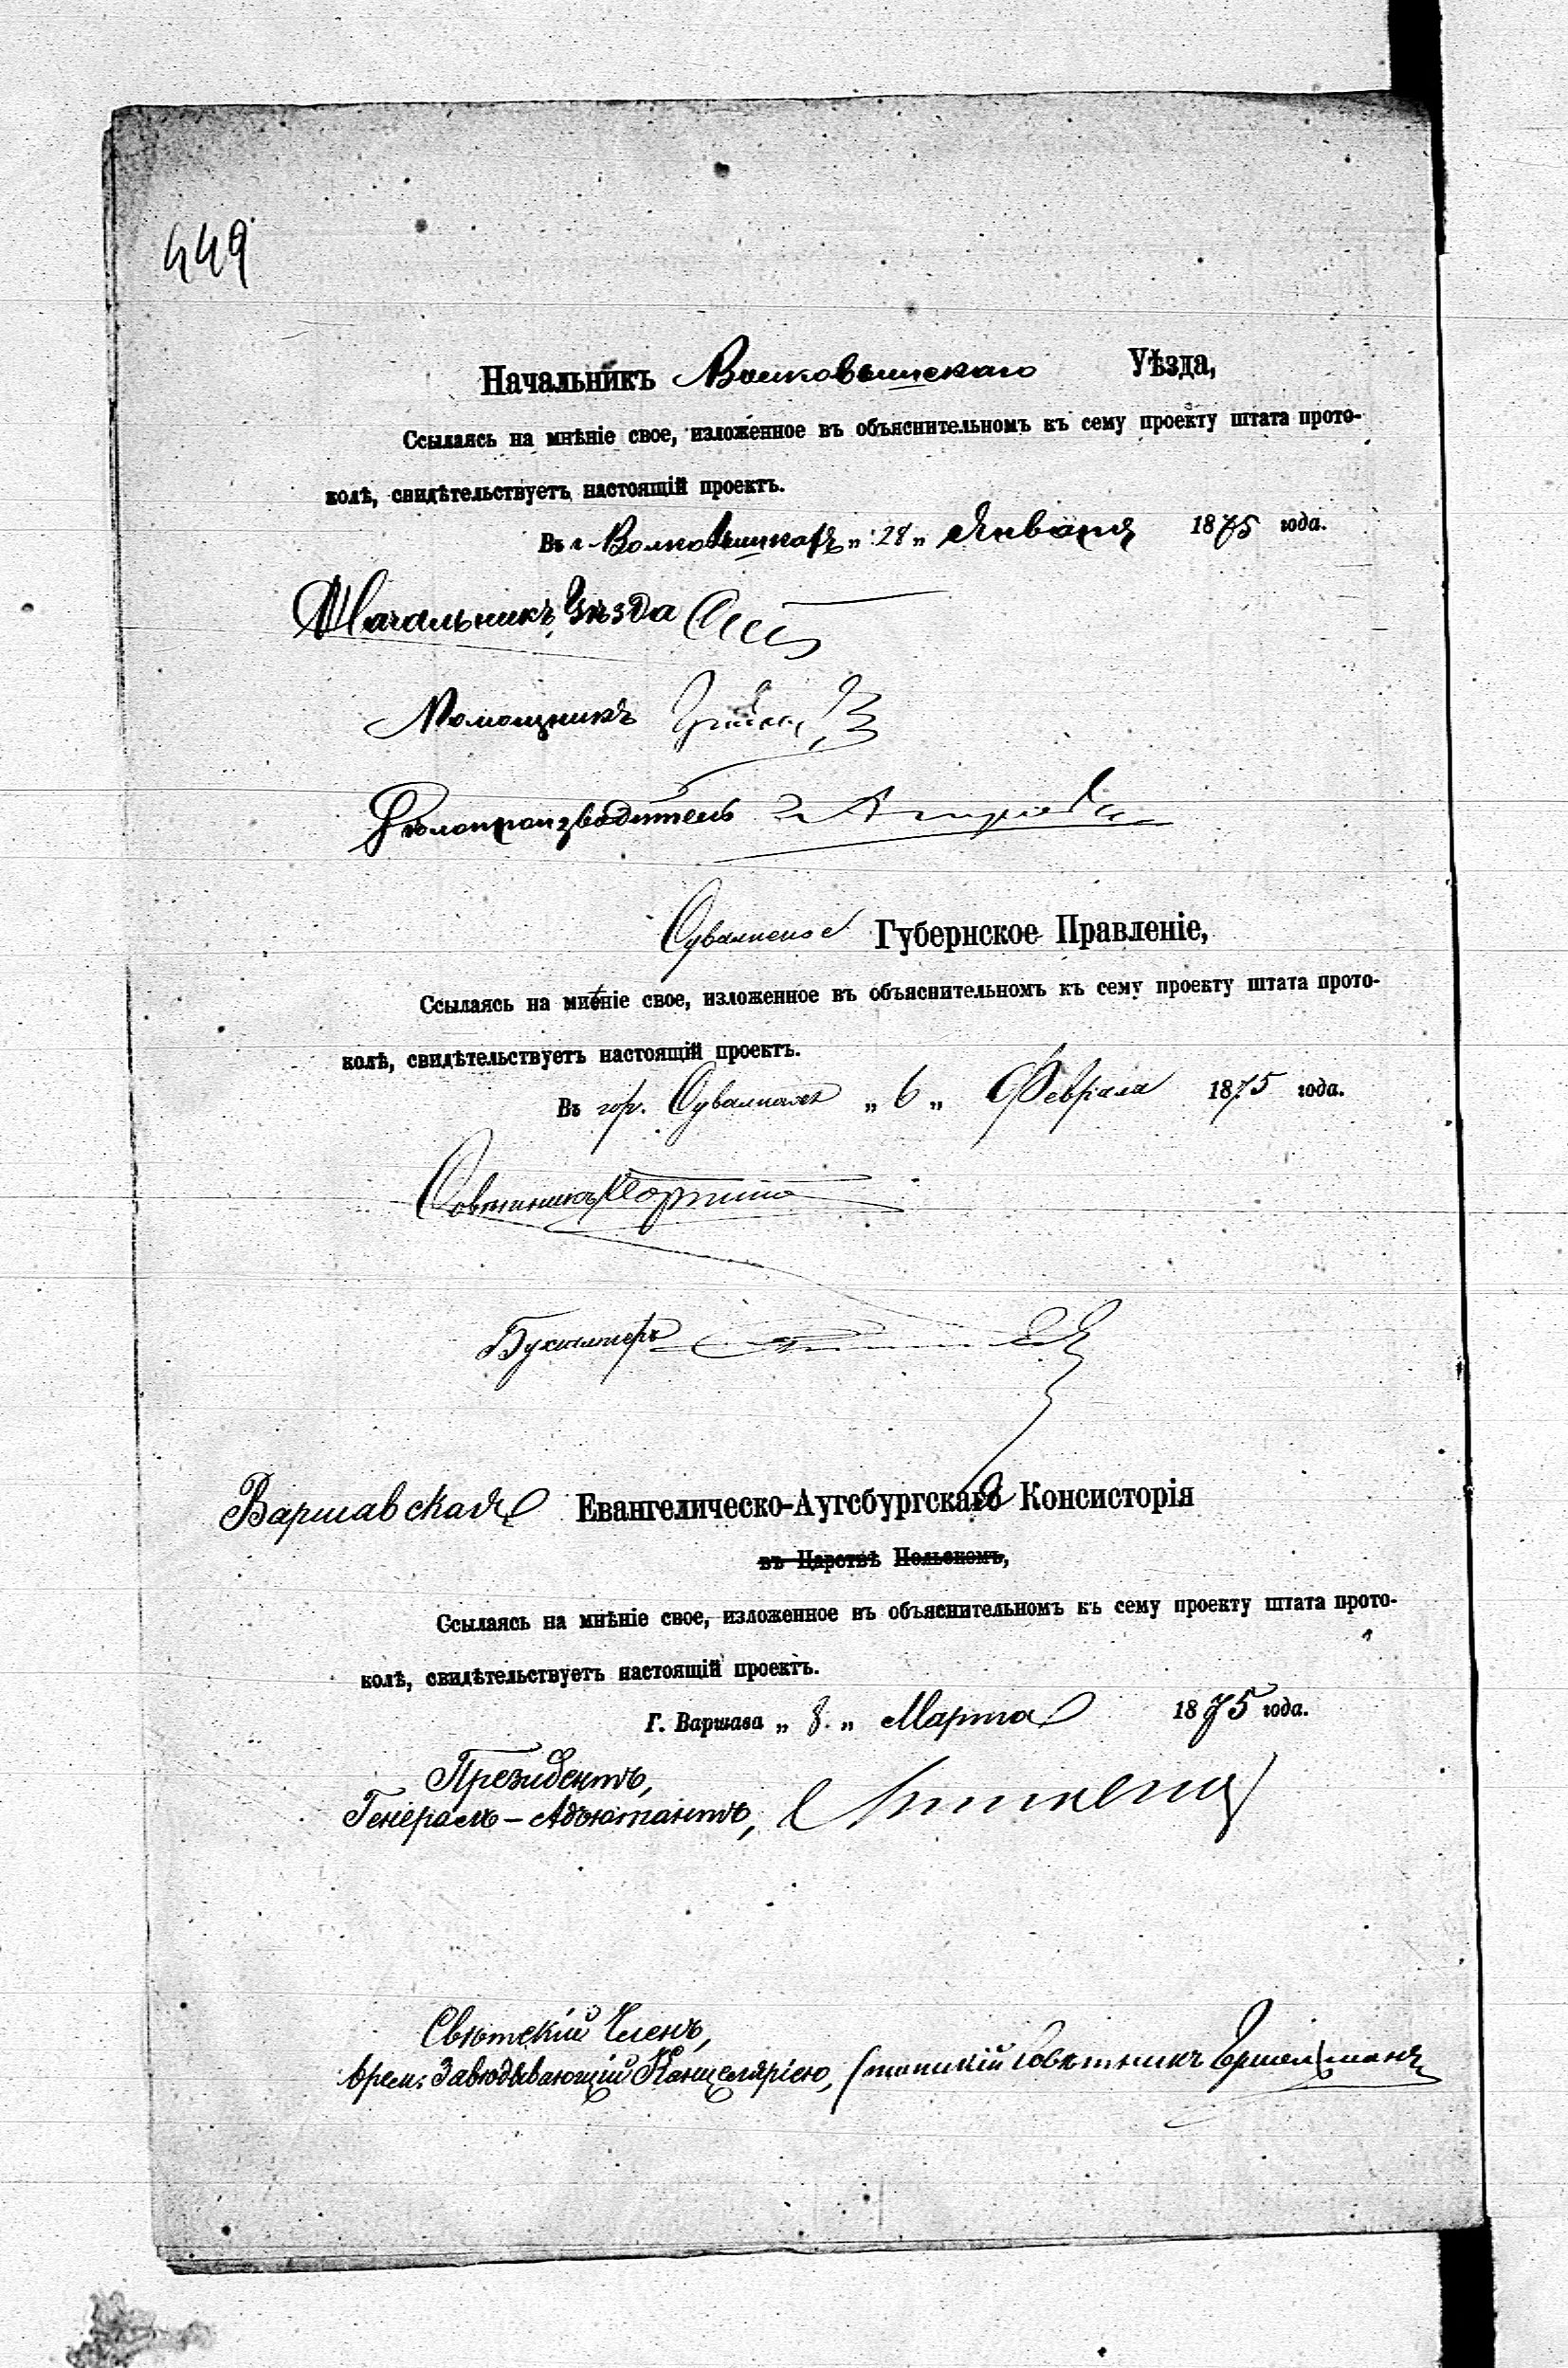 449
Начальникъ Волковышскаго Уѣзда,
Ссылаясь на мнѣніе свое, изложенное въ объяснительномъ къ сему проекту штата прото-
колѣ, свидѣтельствуетъ настоящій проектъ.
Въ г. Волковышкахъ „ 28 „ Января 1875 года.
Начальникъ Уѣзда
Помощникъ
Дѣлопроизводитель
Сувалкское Губернское Правленіе,
Ссылаясь на мнѣніе свое, изложенное въ объяснительномъ къ сему проекту штата прото-
колѣ, свидѣтельствуетъ настоящій проектъ.
Въ гор. Сувалкахъ „ 6 „ Февраля 1875 года.
Совѣтникъ
Бухгалтеръ
Варшавская Евангелическо-Аугсбургская Консисторія
въ Царствѣ Польскомъ,
Ссылаясь на мнѣніе свое, изложенное въ объяснительномъ къ сему проекту штата прото-
колѣ, свидѣтельствуетъ настоящій проектъ.
Г. Варшава „ 8. „ Марта 1875 года.
Президентъ,
Генералъ-Адъютантъ,
Свѣтскій Членъ,
врем: Завѣдывающій Канцеляріею, Статскій Совѣтникъ